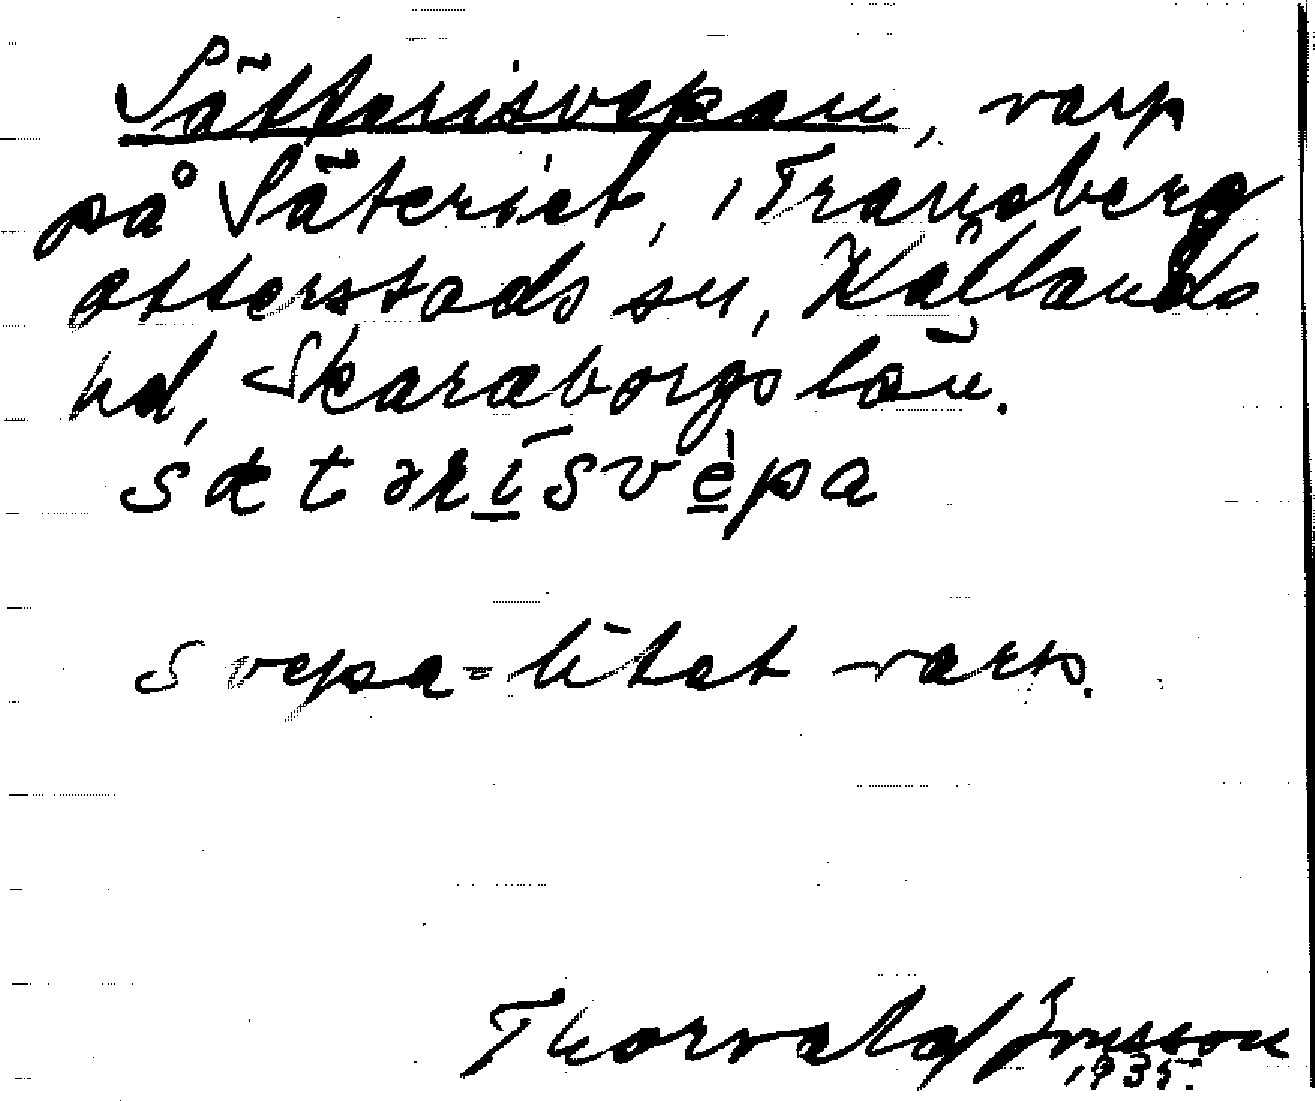 Sätterisvepan, varp
på Säteriet, i Traneberg
otterstads sn, Kållands
hd, Skaraborgs län.
sætərisvèpa
svepa = litet varp.
Thorvald Jonsson
1935.